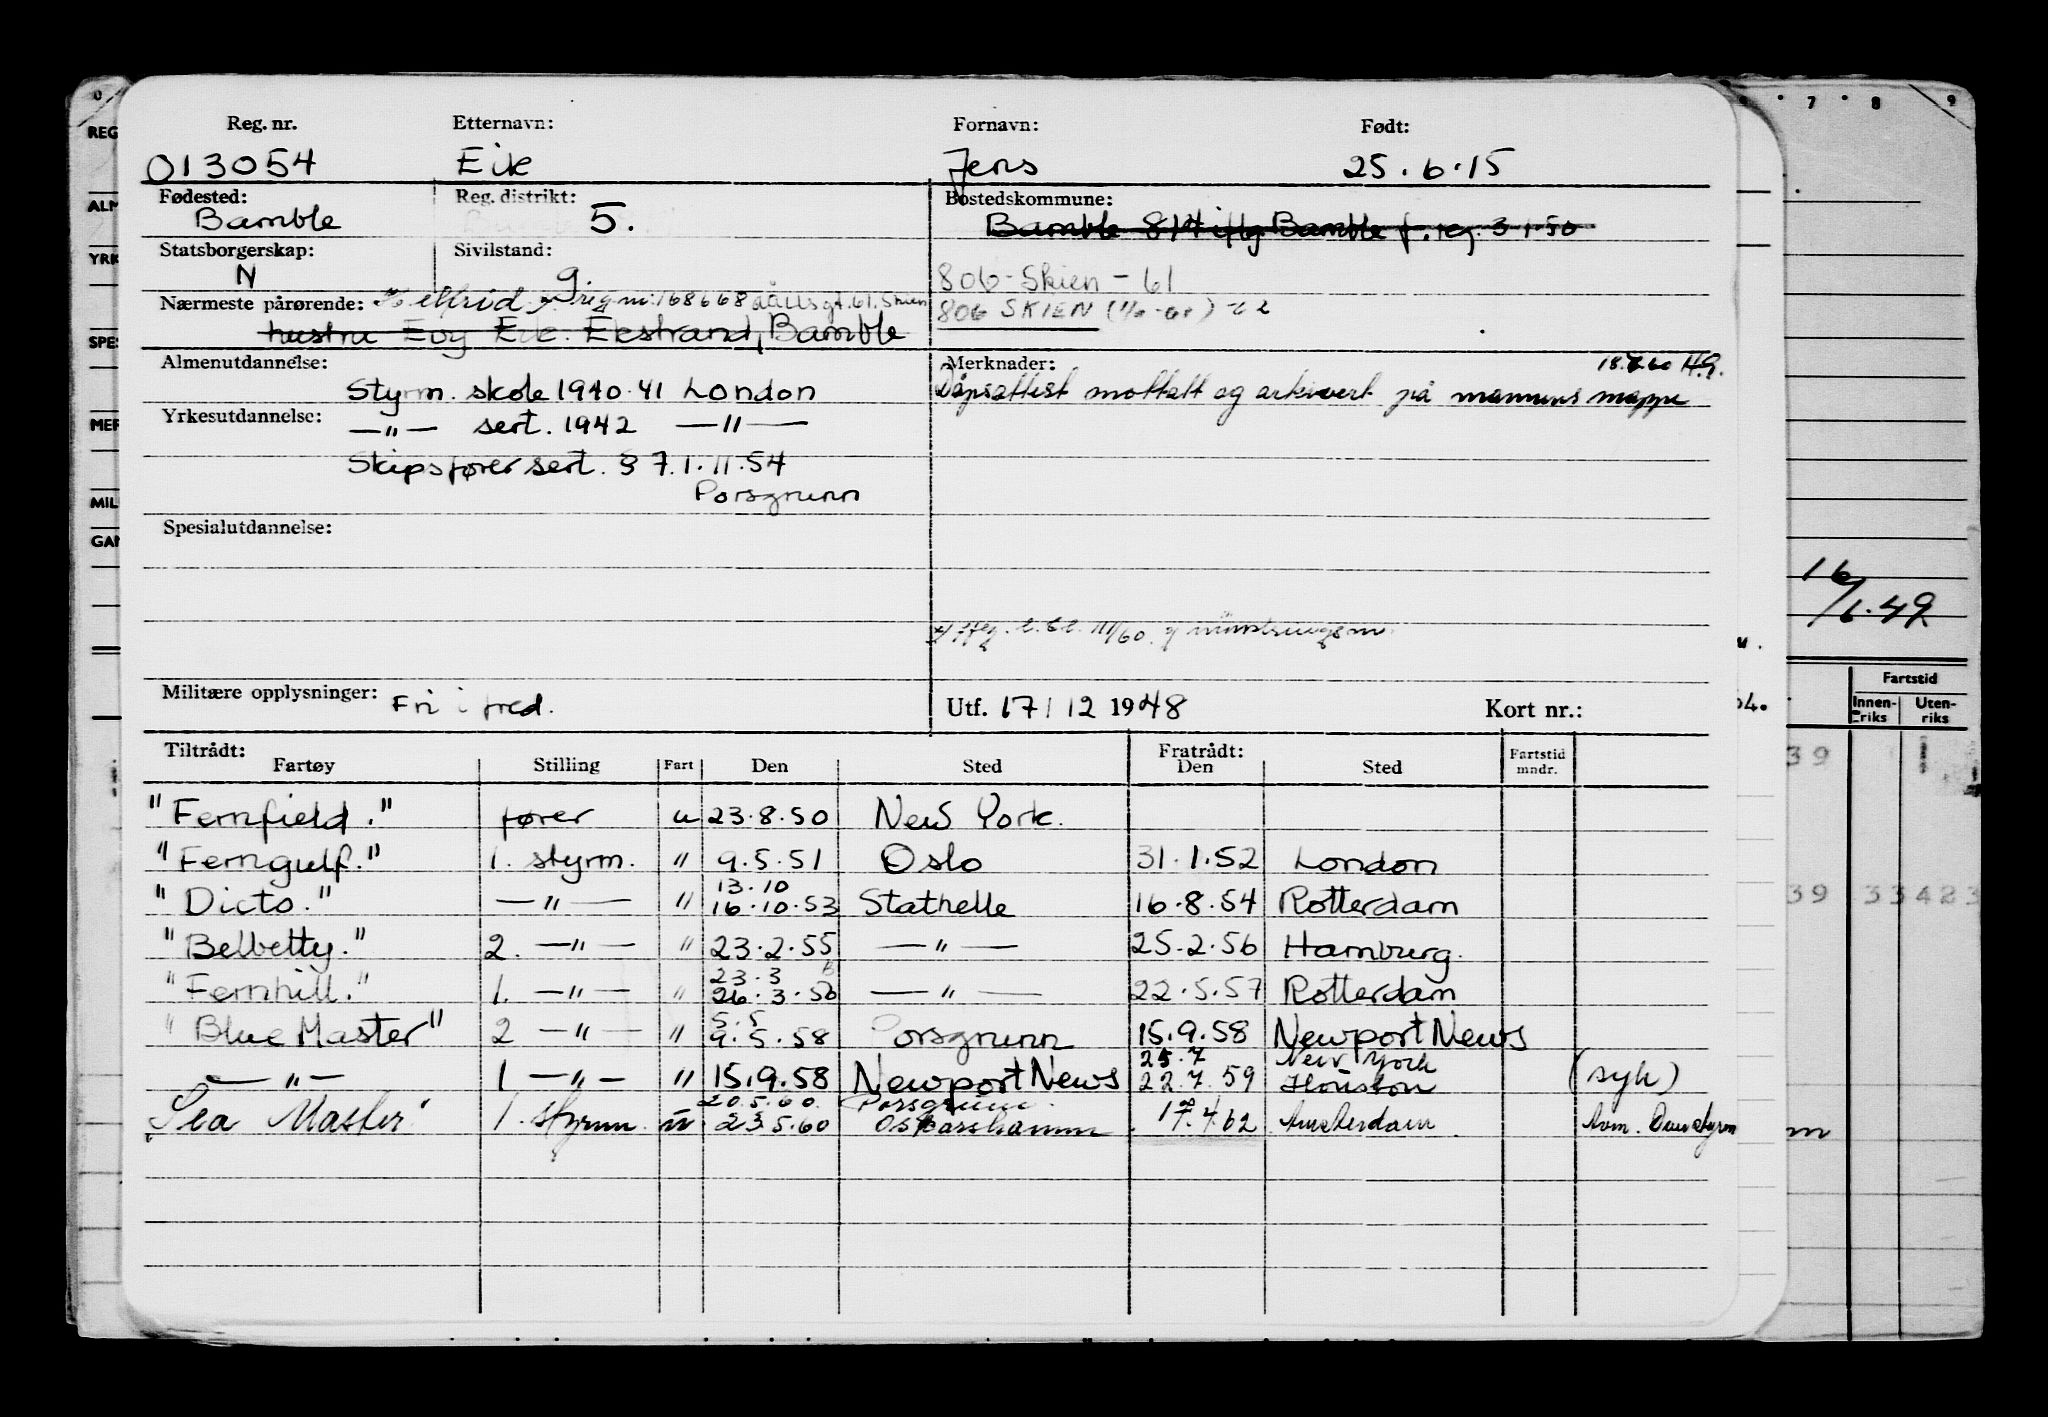 Reg. nr. Etternavn: Fornavn: Født:
013054 Eik Jens 25.6.15
Fødested: Reg. distrikt: Bostedskommune:
Bamble 5. Bamble 814 iflg Bamble f.reg. 3-1-50
Statsborgerskap: Sivilstand:
N g 806-Skien-61
Nærmeste pårørende: reg nr: 168668 Skien 806 SKIEN
hustru Evy Eik. Ekstrand, Bamble
Almenutdannelse: Merknader: H.G.
Styrm. skole 1940-41 London Dåpsattest mottatt og arkivert på mannens mappe
Yrkesutdannelse: —"— sert. 1942 —"—
Skipsførersert. § 7.1.11.54
Porsgrunn
Spesialutdannelse:
16/1.49
Militære opplysninger: Fri i fred. Utf. 17/12 1948 Kort nr.:
Fartstid
Innen-riks Uten-riks
Tiltrådt: Fratrådt:
Fartøy Stilling Fart Den Sted Den Sted Fartstid mndr.
"Fernfield." fører u 23.8.50 New York.
"Ferngulf." 1. styrm. " 9.5.51 Oslo 31.1.52 London
13.10
"Dicto." —"— " 16.10.53 Stathelle 16.8.54 Rotterdam
39 33423
"Belbetty." 2. —"— " 23.2.55 —"— 25.2.56 Hamburg.
23.3
"Fernhill." 1. —"— " 26.3.56 —"— 22.5.57 Rotterdam
5.5
"Blue Master" 2 —"— " 9.5.58 Porsgrunn 15.9.58 Newport News
25.7 New York
—"— 1 —"— " 15.9.58 Newport News 22.7.59 Houston (syk)
20.5.60. Porsgrunn.
Sea Master" 1. styrm u 23.5.60 Oskarshamn. 17.4.62 Amsterdam